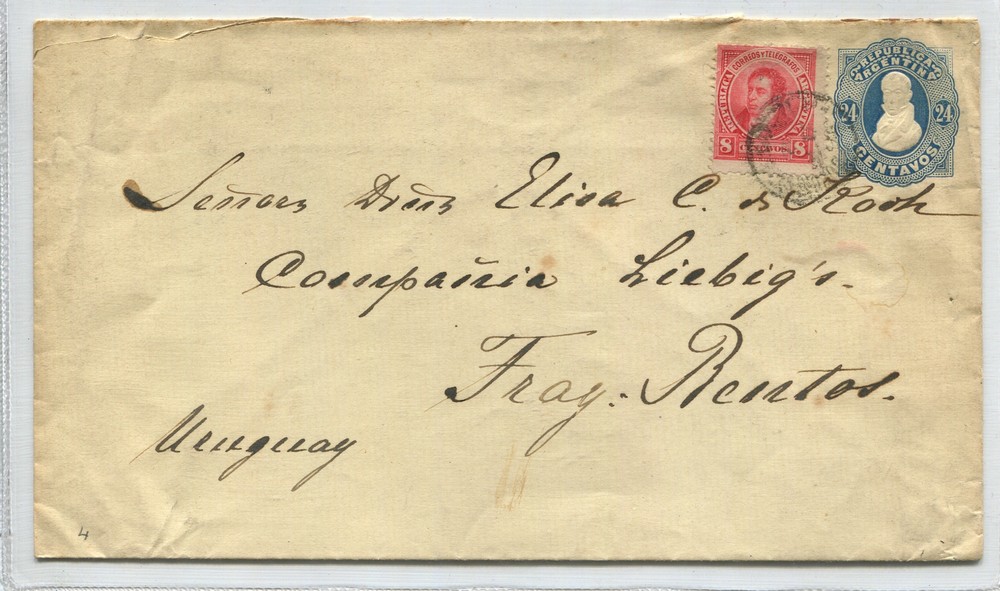 CORREOS Y TELEGRAFOS
REPUBLICA ARGENTINA
8 CENTAVOS 8
REPUBLICA
ARGENTINA
24 24
CENTAVOS
Señora Doña Elisa C. de Koch
Compañia Liebig's.
Fray. Bentos.
Uruguay
4